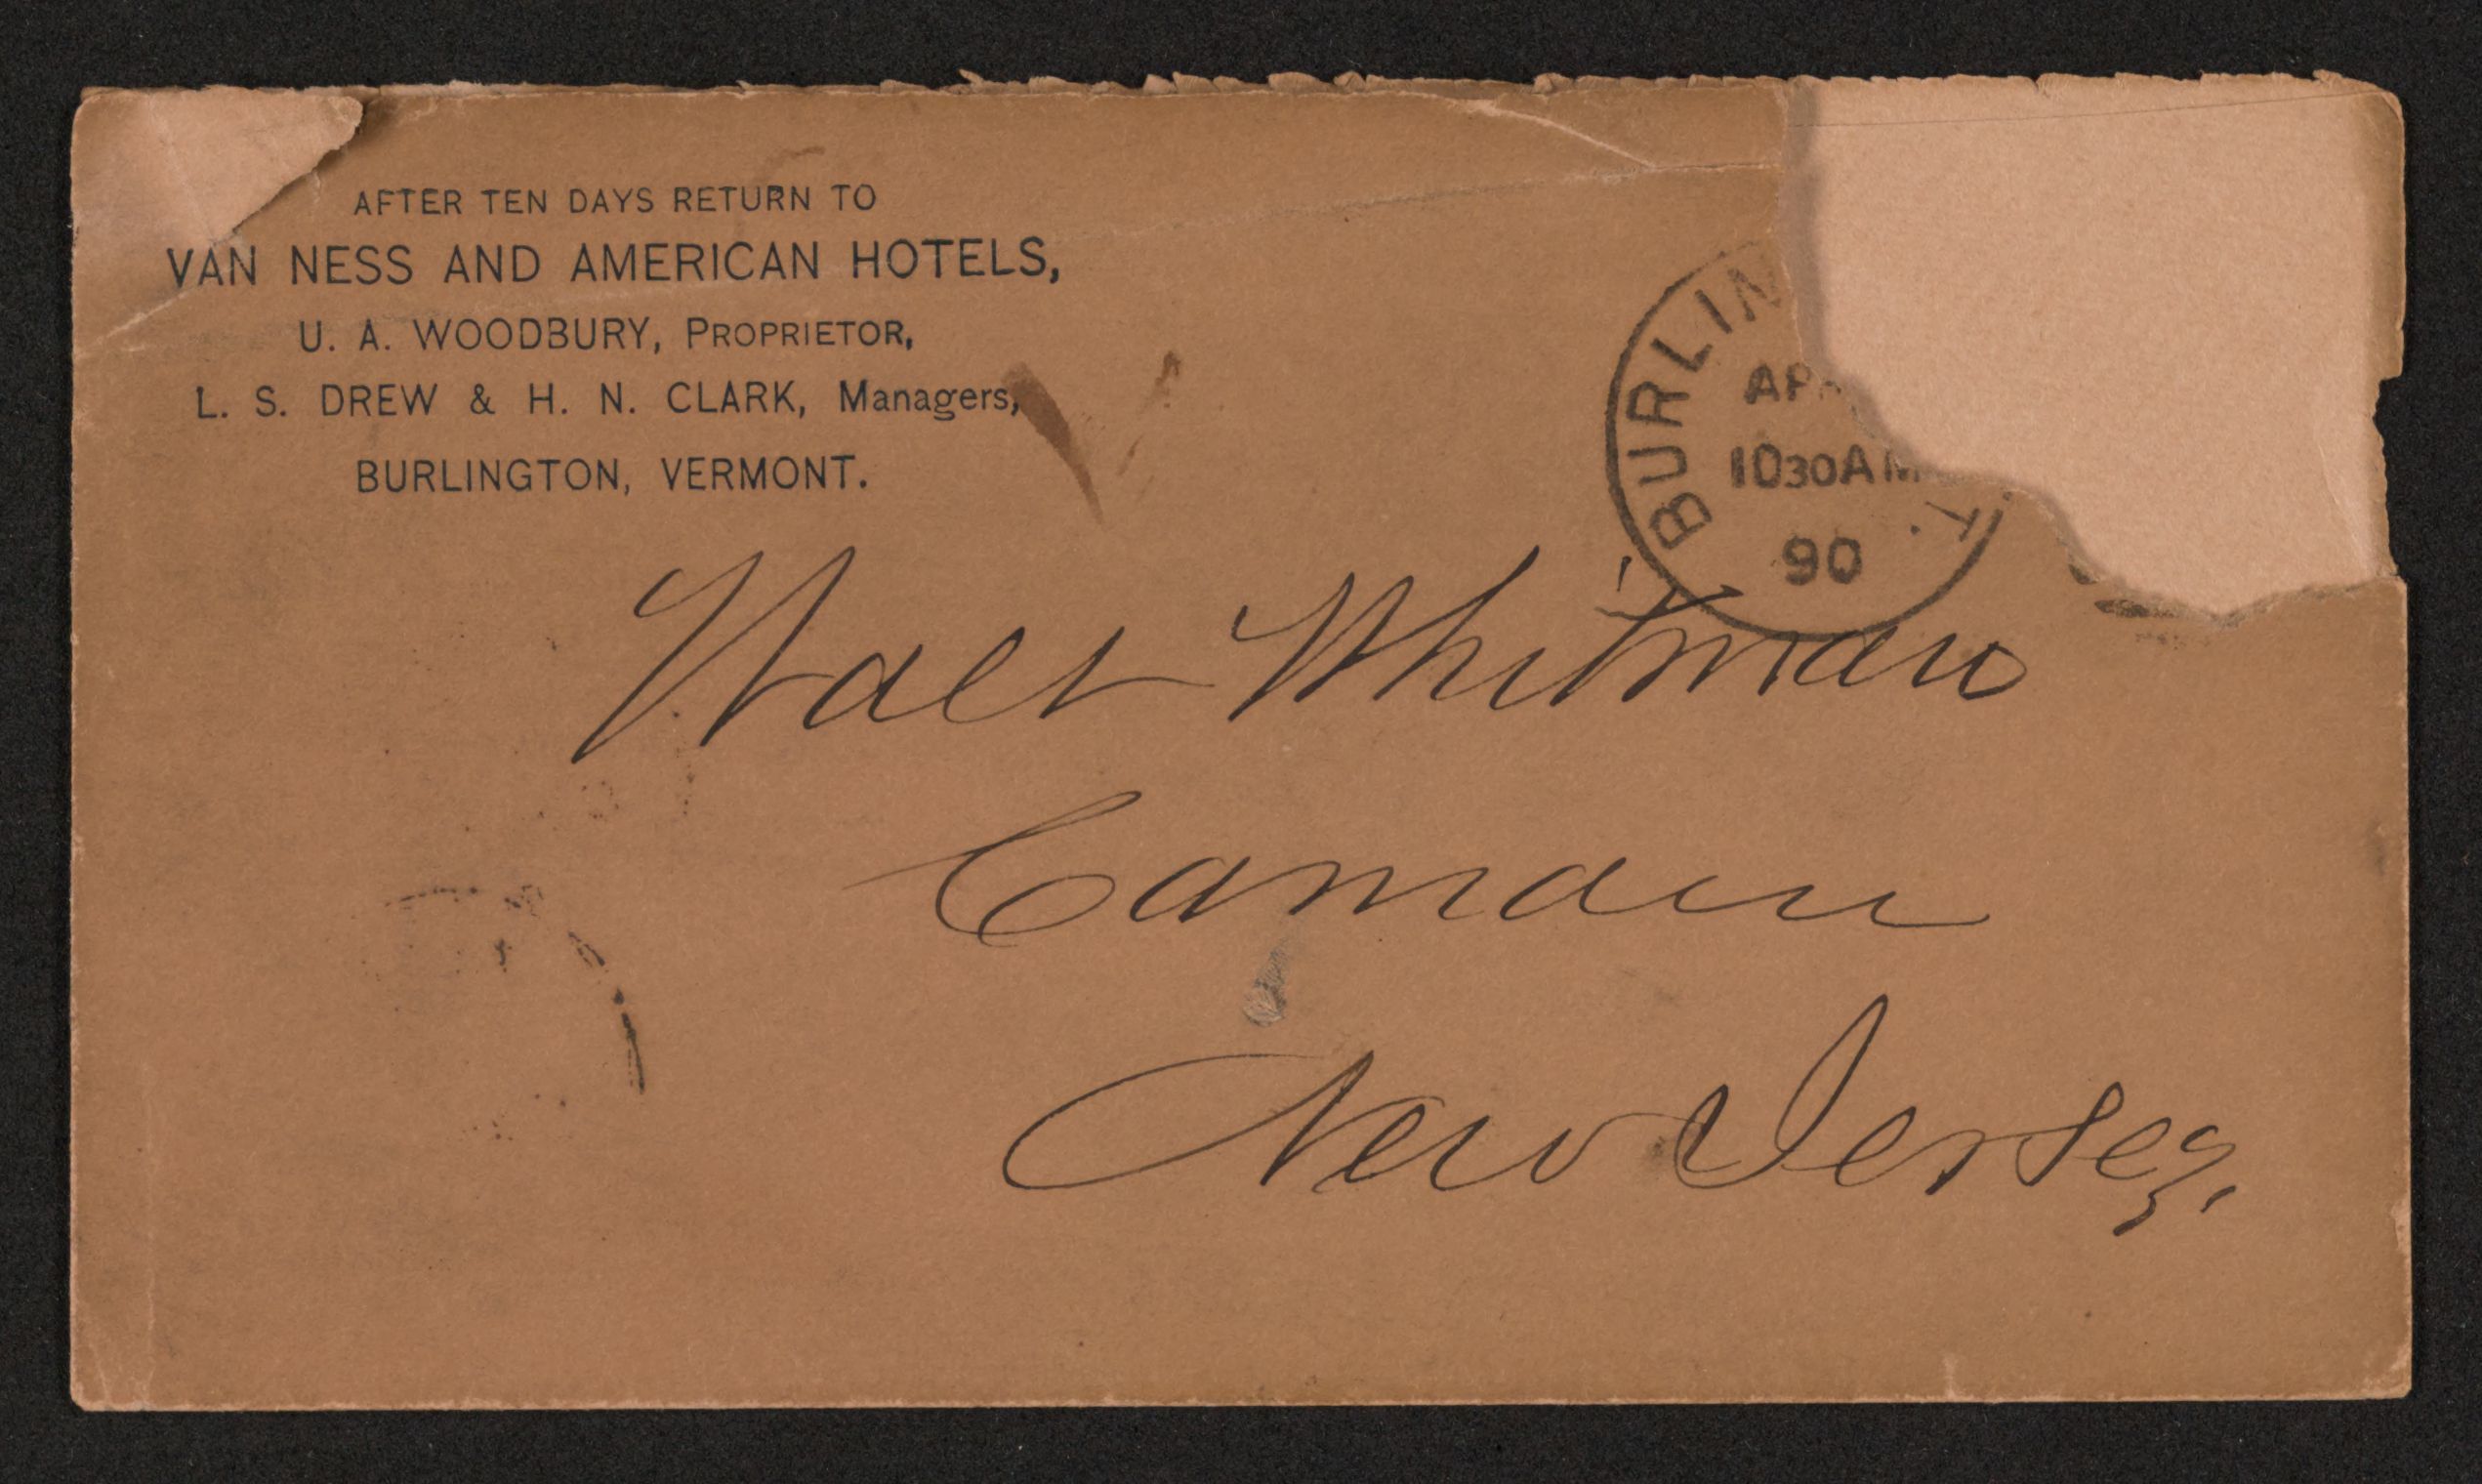 AFTER TEN DAYS RETURN TO
VAN NESS AND AMERICAN HOTELS,
U. A. WOODBURY, PROPRIETOR,
L. S. DREW & H. N. CLARK, Managers,
BURLINGTON, VERMONT.
BURLIN T.
AP
1030AM
90
Walt Whitman
Camden
New Jersey.